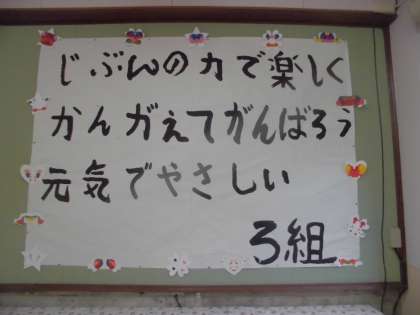 じぶんの力で楽しく
かんがえてがんばろう
元気でやさしい
ろ組